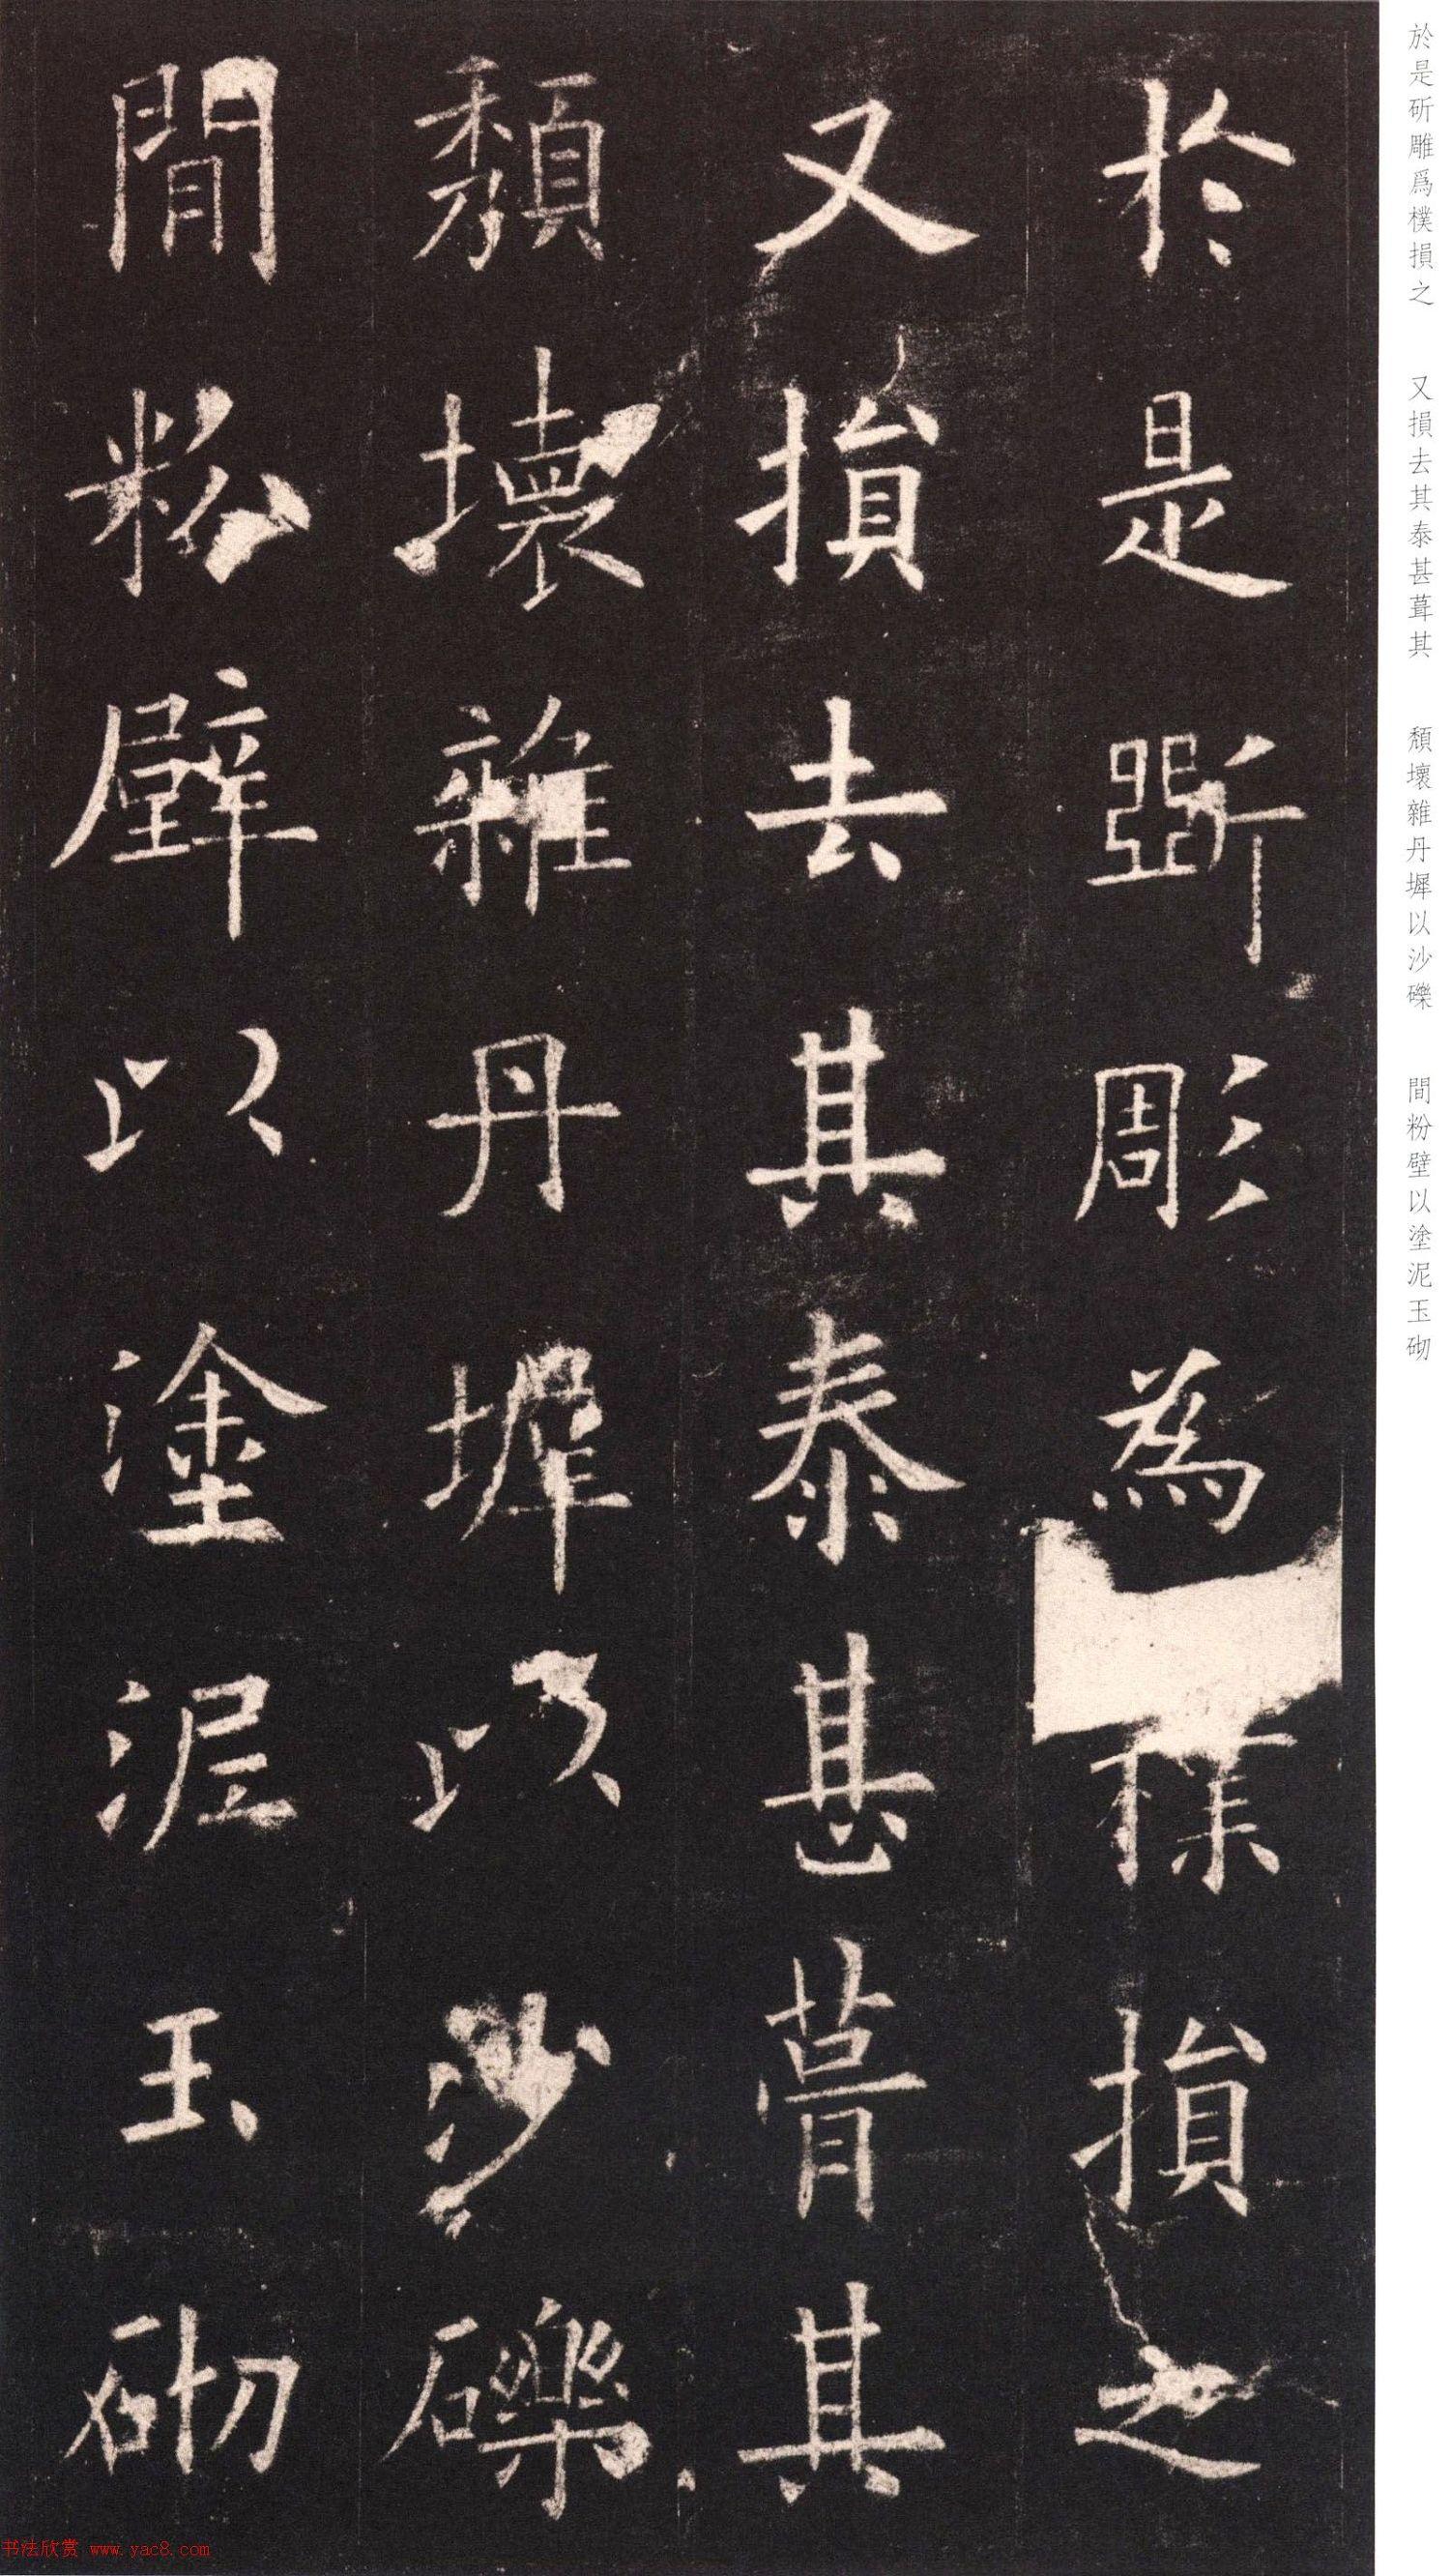 於是斲彫為樸損之
又損去其泰甚葺其
頹壞雜丹墀以沙礫
間粉壁以塗泥玉砌
於是斫雕爲樸損之 又損去其泰甚葺其 頹壞雜丹墀以沙礫 間粉壁以塗泥玉砌
书法欣赏 www.yac8.com